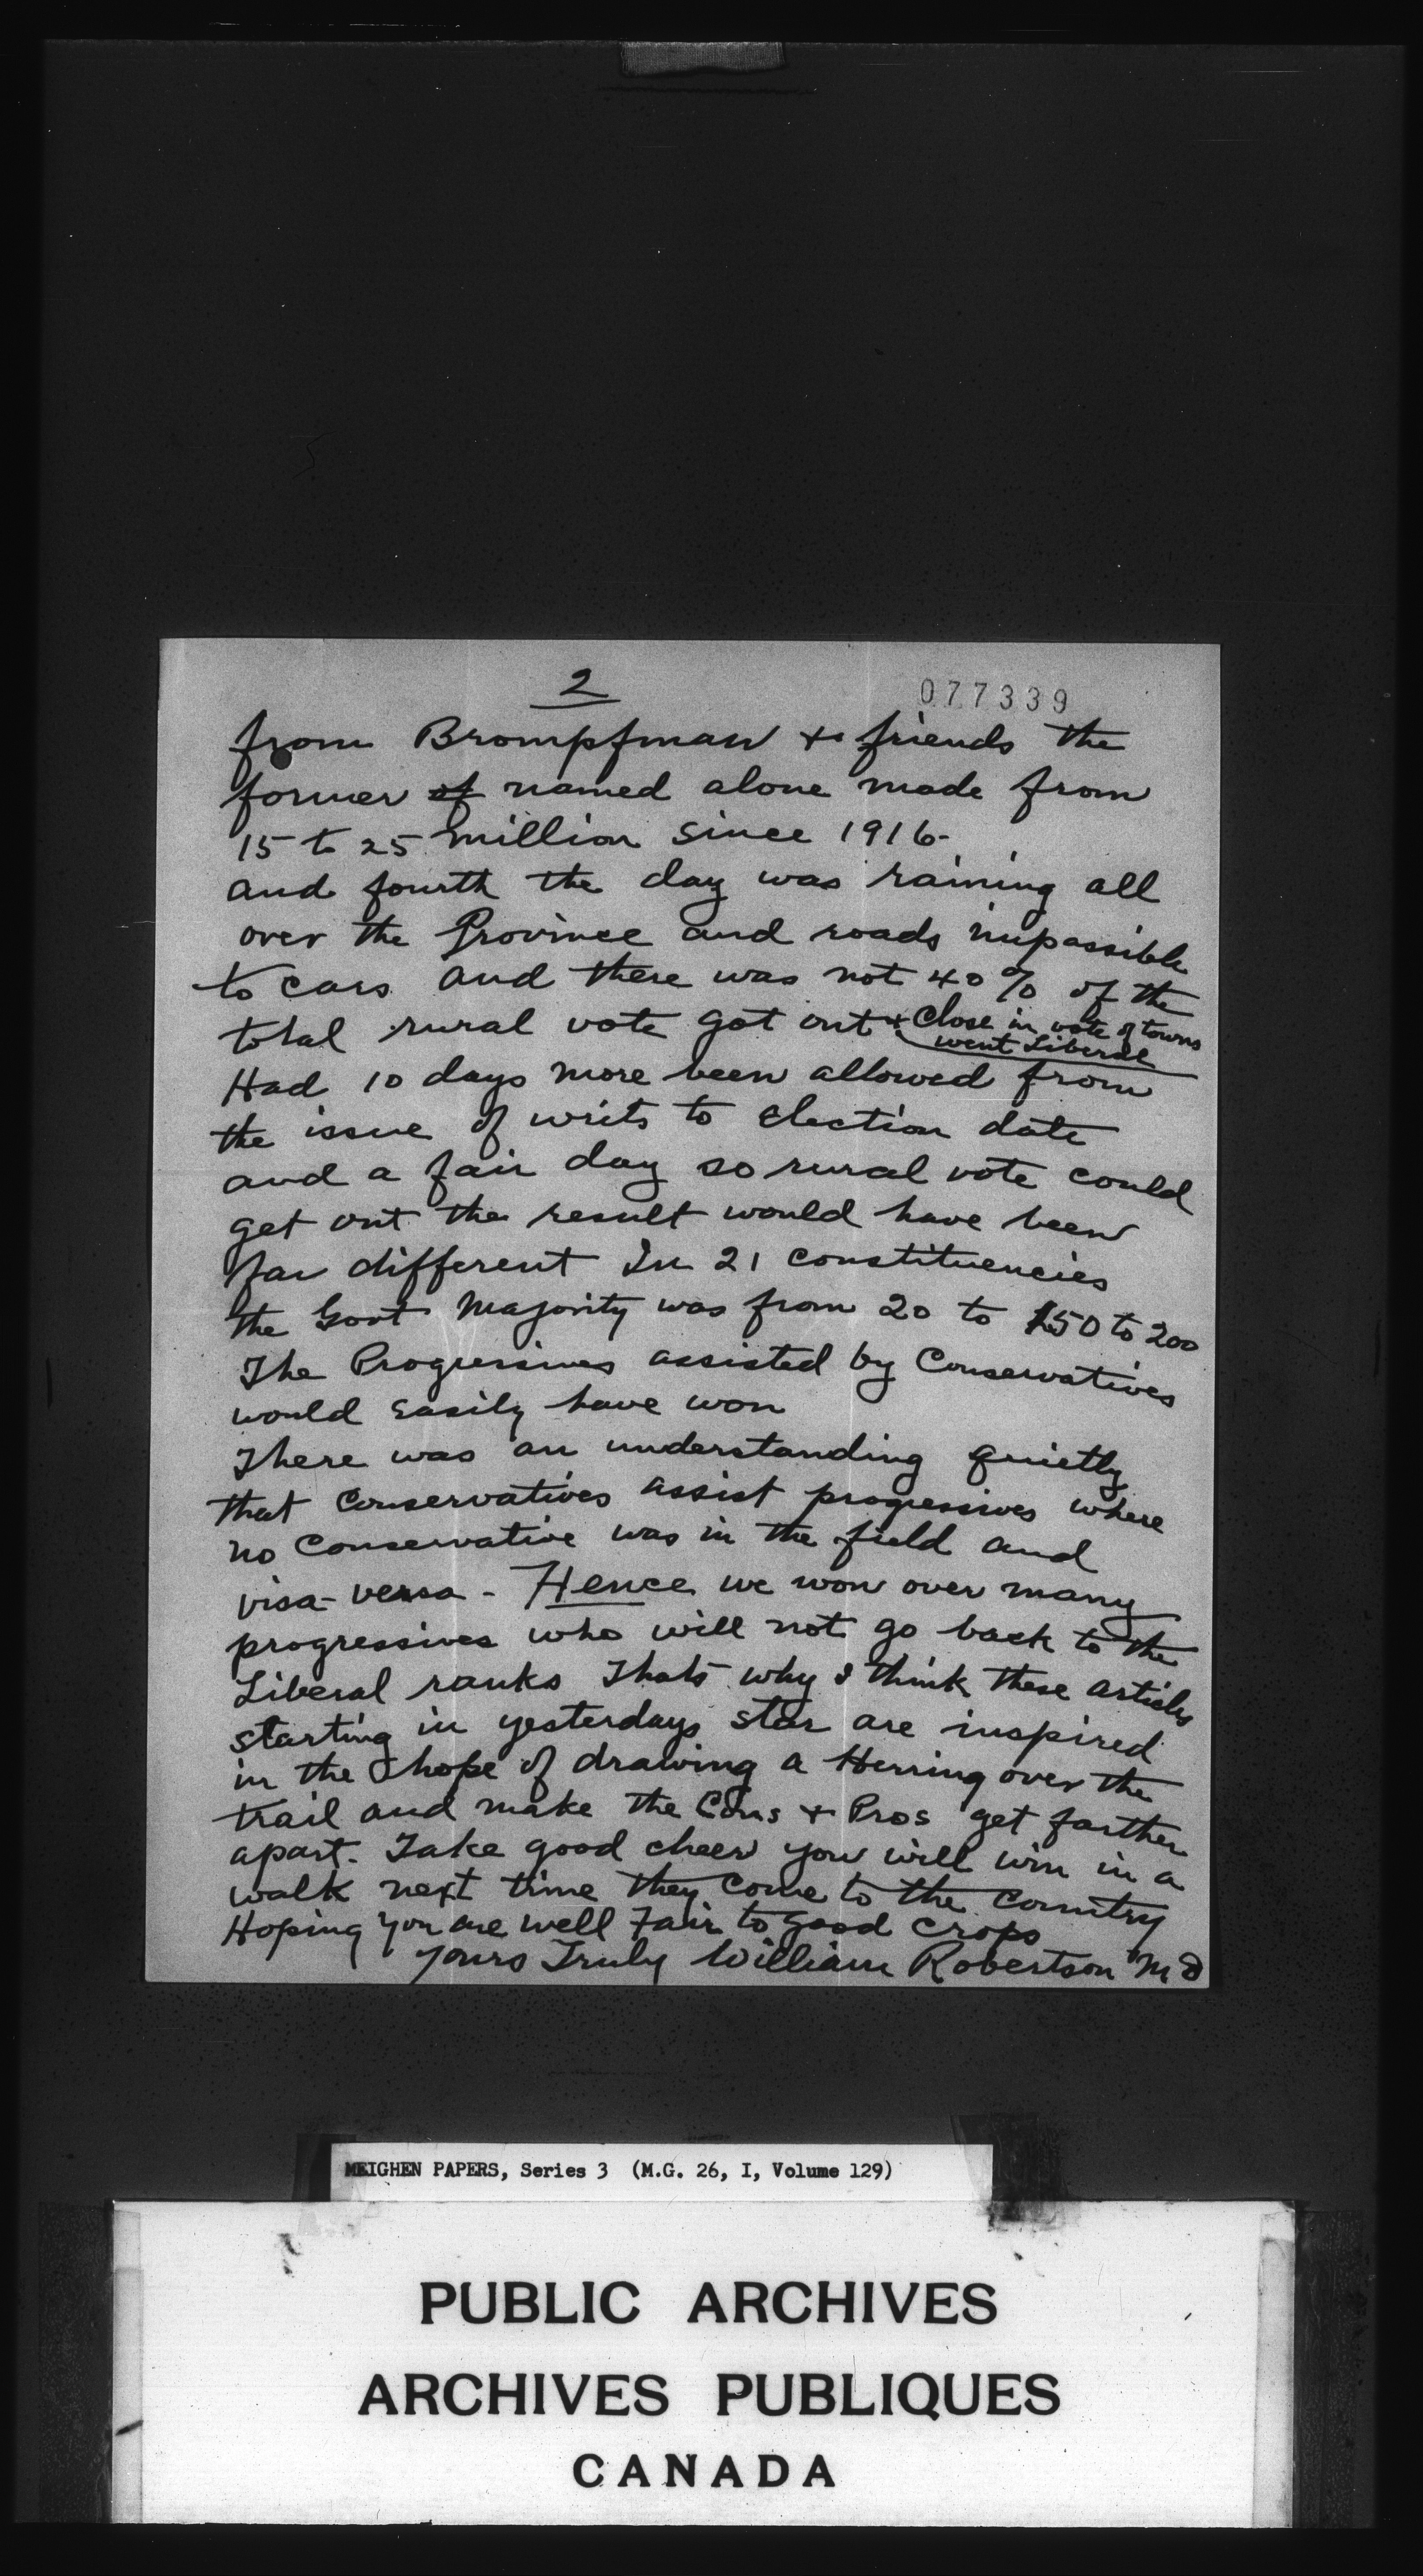 2
077339
from Brompfman & friends the
former of named alone made from
15 to 25 million since 1916-
and fourth the day was raining all
over the Province and roads impassible
to cars and there was not 40% of the
total rural vote got out & Close in vote of towns
went Liberal
Had 10 days more been allowed from
the issue of writs to election date
and a fair day so rural vote could
get out the result would have been
far different In 21 constituencies
the Govt Majority was from 20 to 150 to 200
The Progressives assisted by Conservatives
would easily have won
There was an understanding quietly
that Conservatives assist progressives where
no Conservative was in the field and
visa-versa - Hence we won over many
progressives who will not go back to the
Liberal ranks Thats why I think these articles
starting in yesterdays star are inspired
in the hope of drawing a Herring over the
trail and make the Cons & Pros get farther
apart. Take good cheer you will win in a
walk next time they come to the Country
Hoping you are well Fair to good crops
yours Truly William Robertson MD
MEIGHEN PAPERS, Series 3 (M.G. 26, I, Volume 129)
PUBLIC ARCHIVES
ARCHIVES PUBLIQUES
CANADA